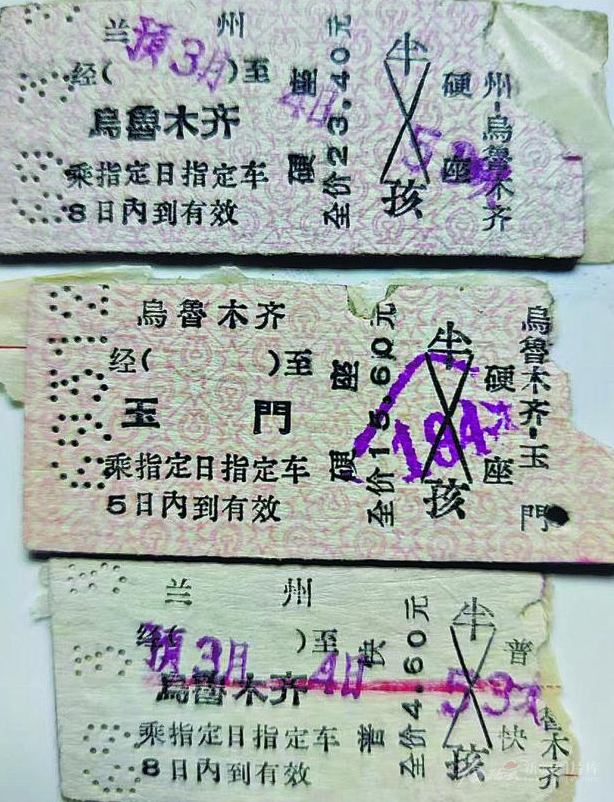 兰州
预3月4日
经( )至
烏魯木齐
乘指定日指定车
8日内到有效
硬座
全价23.40元
半
孩
硬座
州-烏魯木齐
烏魯木齐
经( )至
玉門
乘指定日指定车
5日内到有效
硬座
全价15.60元
半
孩
184次
硬座
烏魯木齐-玉門
兰州
预3月4日
经( )至
烏魯木齐
乘指定日指定车
8日内到有效
普快
全价4.60元
半
孩
53次
普快
魯木齐